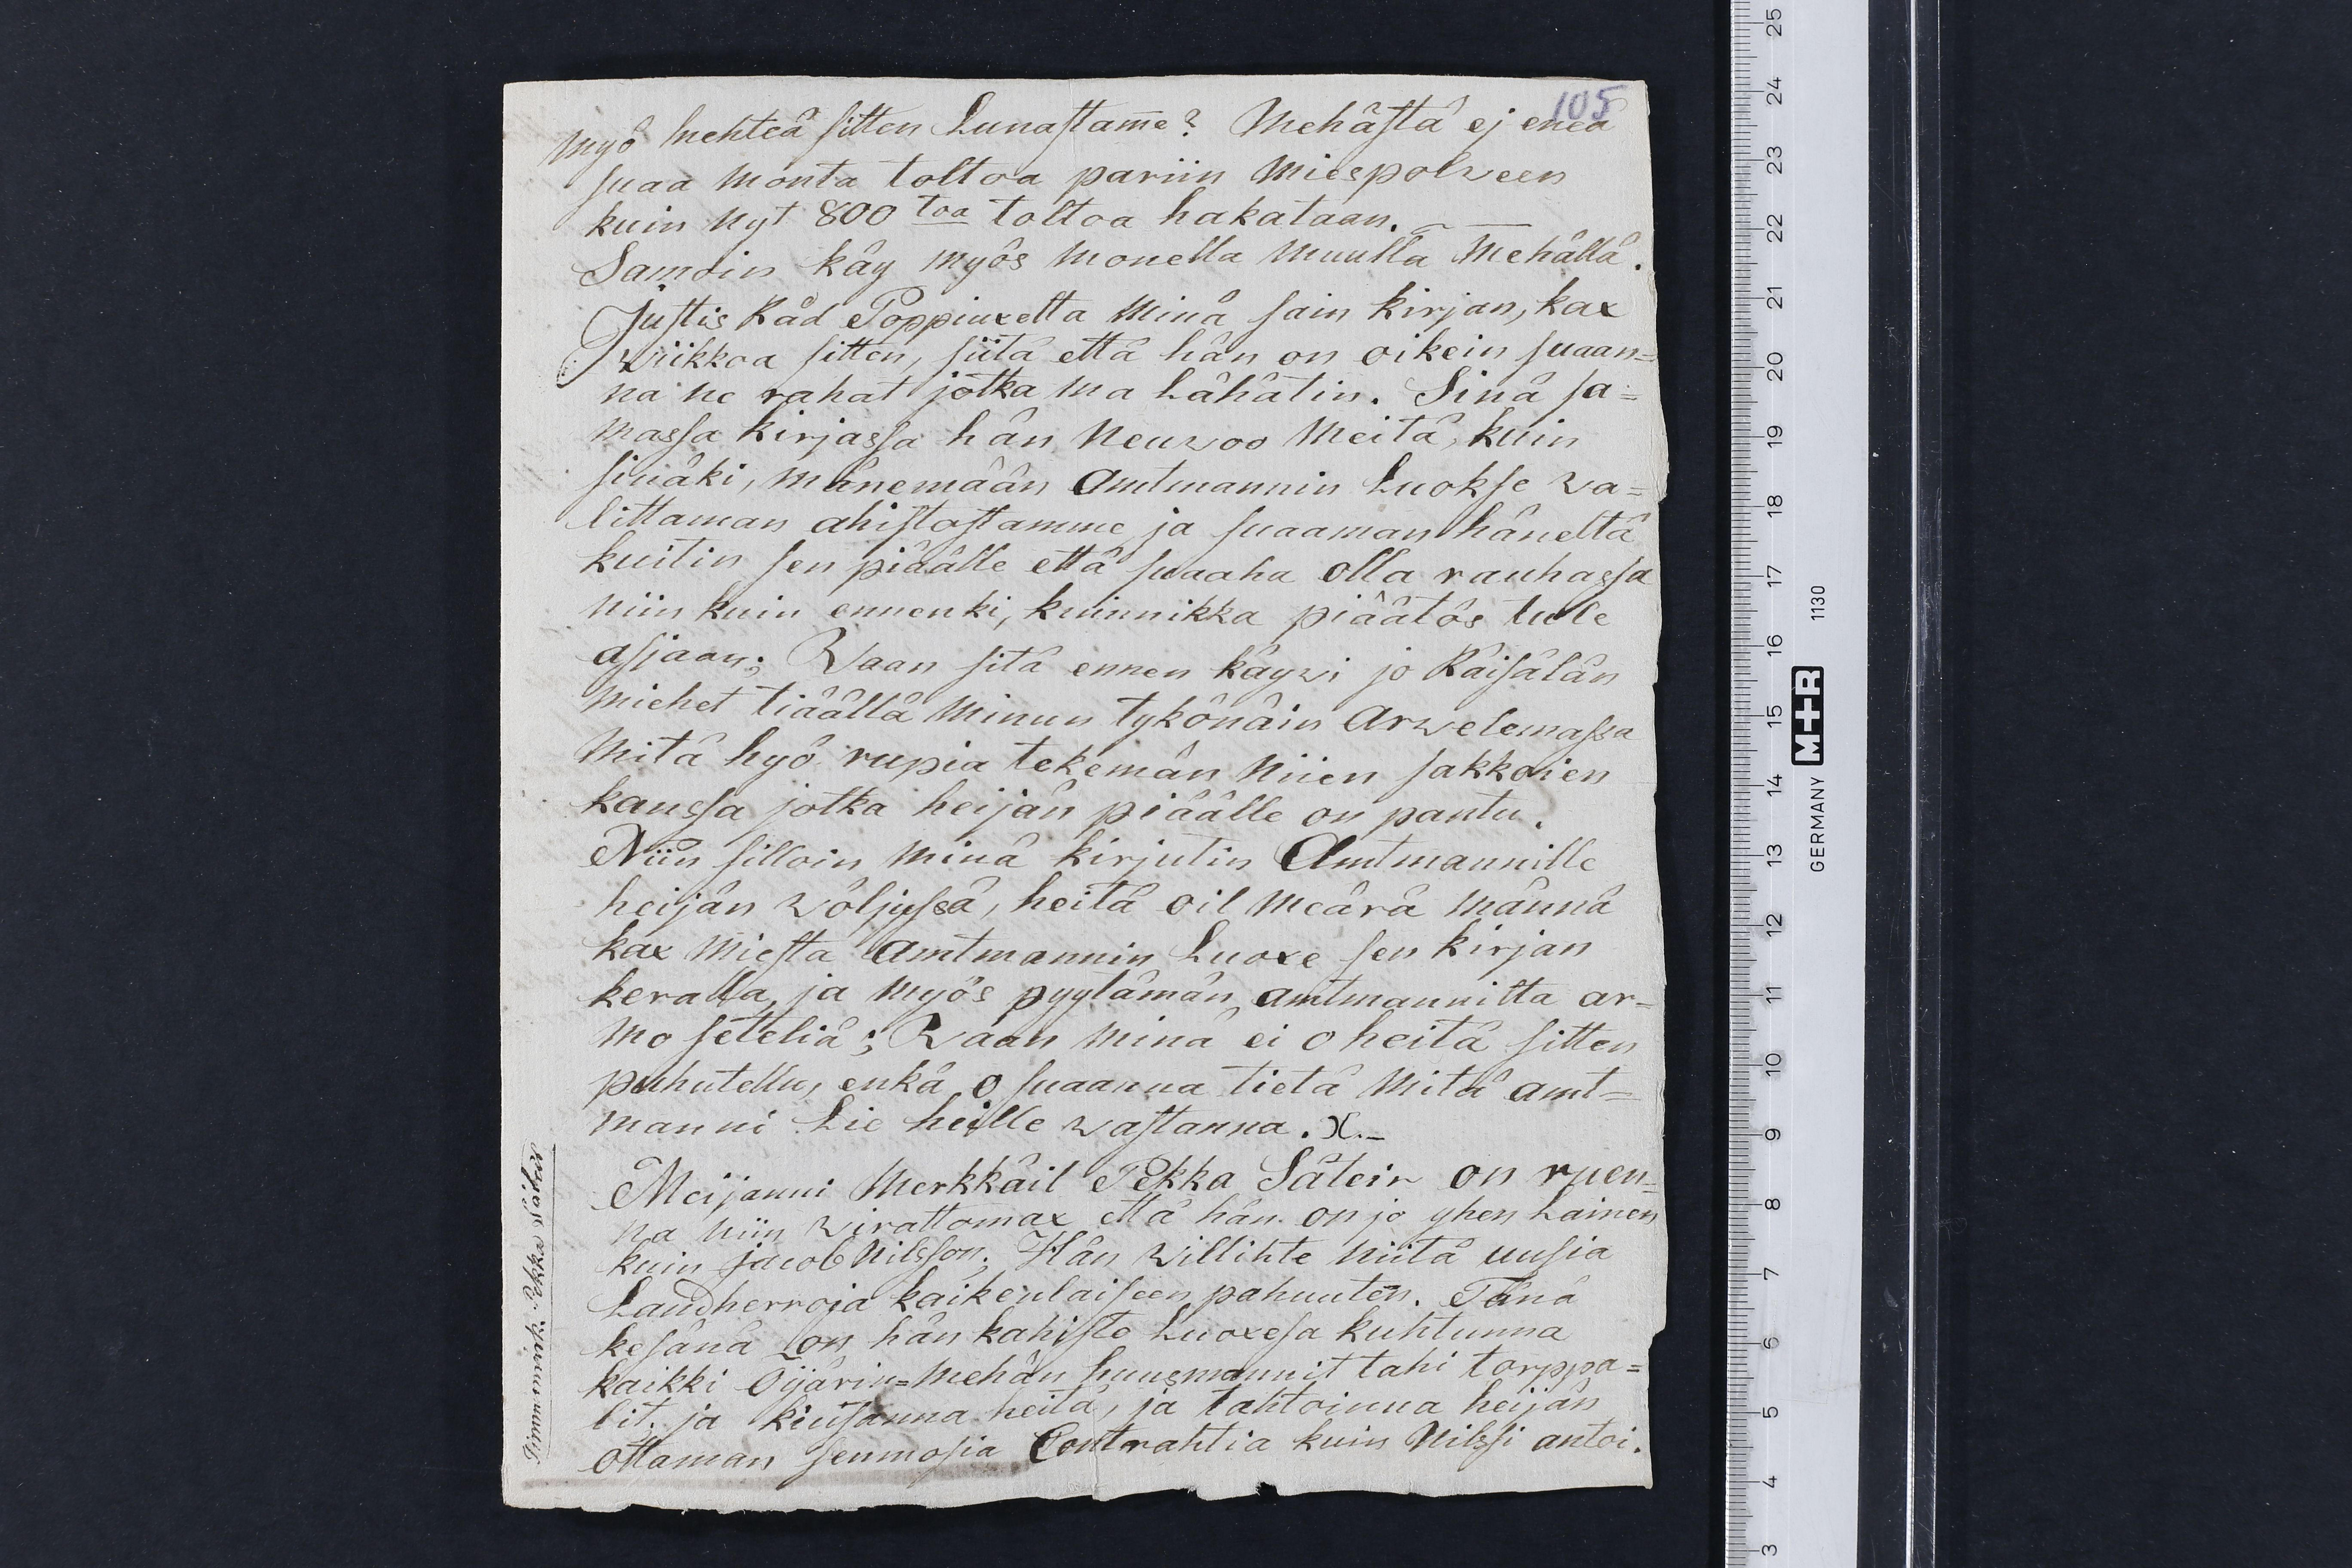 105
myö mehteä sitten Lunastam̅e? Mehästä ej eneä
suaa monta toltoa pariin Miespolween
kuin nyt 800 toa toltoa hakataan.
Samoin käy myös monella muulla mehällä.
Justis Råd Poppiuxelta minä sain kirjan, kax
wiikkoa sitten, siitä että hän on oikein suaan=
na ne rahat jotka ma Lähätin. Sinä sa=
massa kirjassa hän neuwoo meitä, kuin
sinäki, mänemään Amtmannin Luokse wa=
littaman ahistostamme ja suaaman häneltä
kuitin sen piäälle että suaaha olla rauhassa
niin kuin ennenki, kuinnikka piäätös tule
assjaan; Waan sitä ennen käywi jo Räisälän
miehet tiäällä minun tykönäin Arwelemassa
mitä hyö rupia tekemän niien sakkoien
kanssa jotka heijän piäälle on pantu.
Niin silloin minä kirjutin Amtmannille
heijän wäljyssä, heitä oil meärä männä
kax miestä Amtmannin Luoxe sen kirjan
keralla, ja myös pyytämän amtmannilta ar=
mo seteliä; Waan minä ei o heitä sitten
puhutellu, enkä o suaanna tietä mitä amt=
manni Lie heille wastanna. X.–
Meijänni Merkkäil Pekka Sätein on ruen=
na niin wirattomax että hän on jo yhen Lainen
kuin Jacob Nilsson. Hän willihte niitä uusia
Landherroja kaikenlaiseen pahuuten. Tänä
kesänä on hän kahiste Luoxesa kuhtunna
kaikki Öijärin=mehän huusmannit tahi torppa=
lit, ja kiusanna heitä, ja tahtoinna heijän
ottaman senmosia Contrahtia kuin Nilssi antoi.